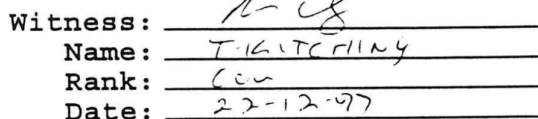 Witness:
Name: T. KITCHING
Rank:
Date: 22-12-97